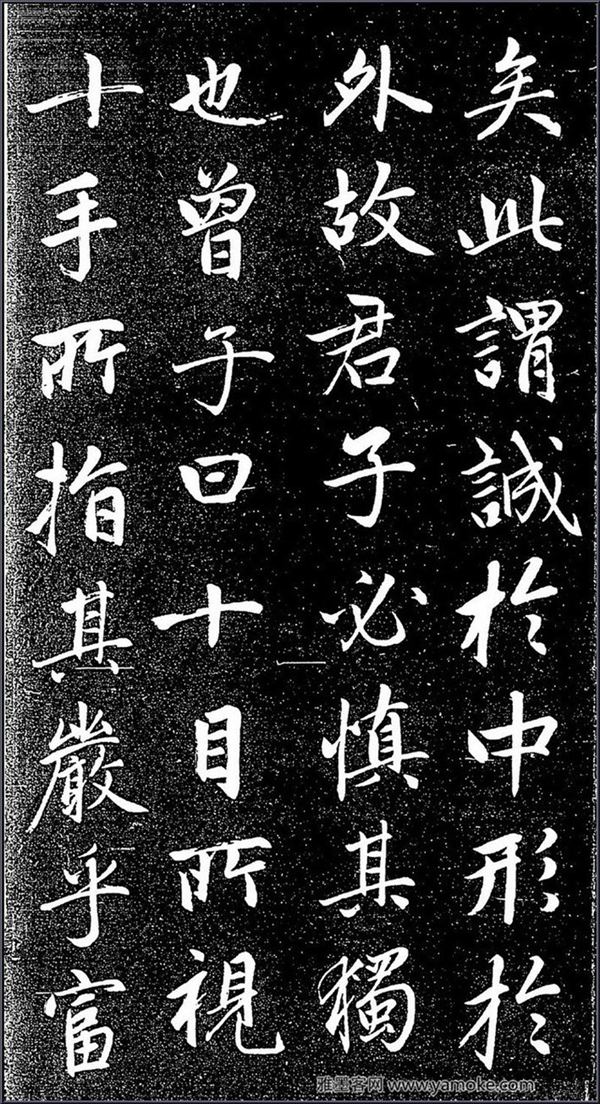 矣此謂誠於中形於
外故君子必慎其獨
也曾子曰十目所視
十手所指其嚴乎富
雅墨客网 www.yamoke.com